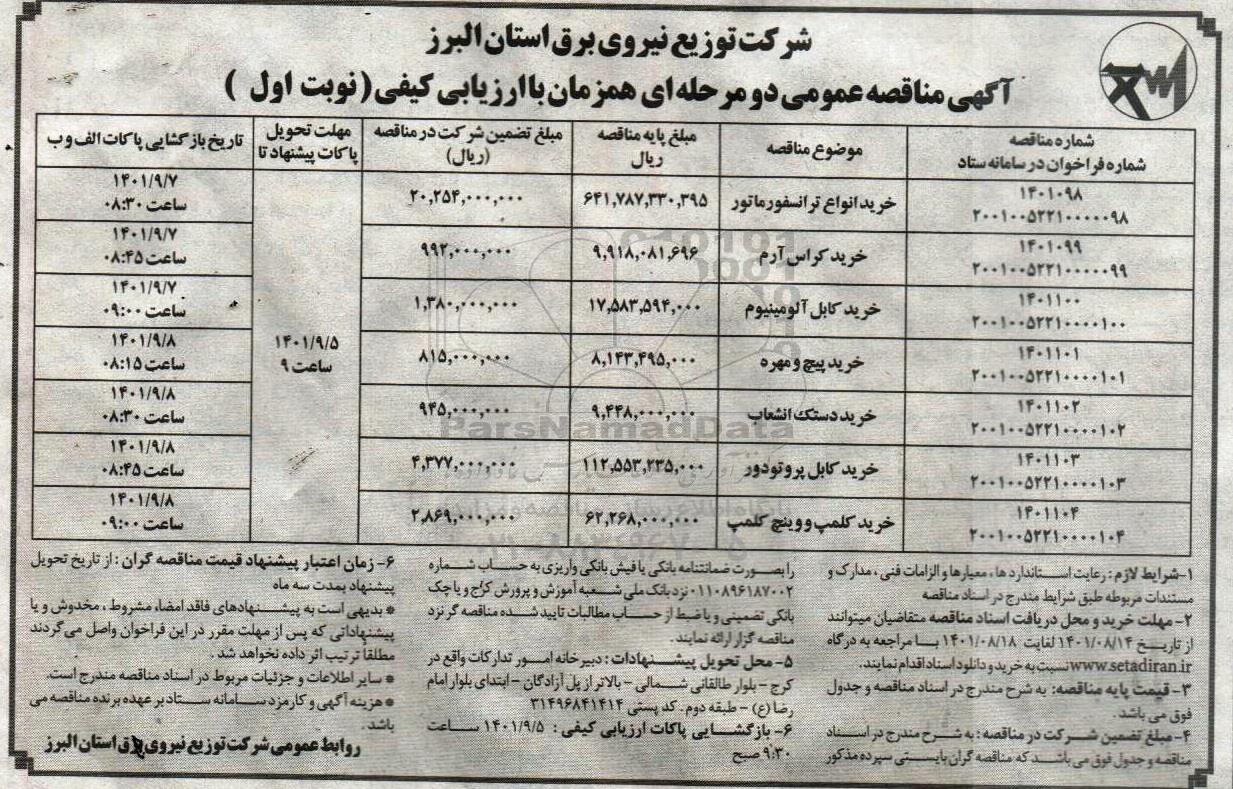 شرکت توزیع نیروی برق استان البرز
آگهی مناقصه عمومی دو مرحله ای همزمان با ارزیابی کیفی (نوبت اول )
شماره مناقصه
شماره فراخوان در سامانه ستاد
موضوع مناقصه
مبلغ پایه مناقصه
ریال
مبلغ تضمین شرکت در مناقصه
(ریال)
مهلت تحویل
پاکات پیشنهاد تا
تاریخ بازگشایی پاکات الف و ب
۱۴۰۱۰۹۸
۲۰۰۱۰۰۵۲۲۱۰۰۰۰۰۹۸
خرید انواع ترانسفورماتور
۶۴۱,۷۸۷,۳۳۰,۳۹۵
۲۰,۲۵۴,۰۰۰,۰۰۰
۱۴۰۱/۹/۵
ساعت ۹
۱۴۰۱/۹/۷
ساعت ۰۸:۳۰
۱۴۰۱۰۹۹
۲۰۰۱۰۰۵۲۲۱۰۰۰۰۰۹۹
خرید کراس آرم
۹,۹۱۸,۰۸۱,۶۹۶
۹۹۲,۰۰۰,۰۰۰
۱۴۰۱/۹/۷
ساعت ۰۸:۴۵
۱۴۰۱۱۰۰
۲۰۰۱۰۰۵۲۲۱۰۰۰۰۱۰۰
خرید کابل آلومینیوم
۱۷,۵۸۳,۵۹۴,۰۰۰
۱,۳۸۰,۰۰۰,۰۰۰
۱۴۰۱/۹/۷
ساعت ۰۹:۰۰
۱۴۰۱۱۰۱
۲۰۰۱۰۰۵۲۲۱۰۰۰۰۱۰۱
خرید پیچ و مهره
۸,۱۴۳,۴۹۵,۰۰۰
۸۱۵,۰۰۰,۰۰۰
۱۴۰۱/۹/۸
ساعت ۰۸:۱۵
۱۴۰۱۱۰۲
۲۰۰۱۰۰۵۲۲۱۰۰۰۰۱۰۲
خرید دستک انشعاب
۹,۴۴۸,۰۰۰,۰۰۰
۹۴۵,۰۰۰,۰۰۰
۱۴۰۱/۹/۸
ساعت ۰۸:۳۰
۱۴۰۱۱۰۳
۲۰۰۱۰۰۵۲۲۱۰۰۰۰۱۰۳
خرید کابل پروتودور
۱۱۲,۵۵۳,۲۳۵,۰۰۰
۴,۳۷۷,۰۰۰,۰۰۰
۱۴۰۱/۹/۸
ساعت ۰۸:۴۵
۱۴۰۱۱۰۴
۲۰۰۱۰۰۵۲۲۱۰۰۰۰۱۰۴
خرید کلمپ و وینچ کلمپ
۶۲,۲۶۸,۰۰۰,۰۰۰
۲,۸۶۹,۰۰۰,۰۰۰
۱۴۰۱/۹/۸
ساعت ۰۹:۰۰
ParsNamadData
۱-شرایط لازم : رعایت استاندارد ها ، معیارها و الزامات فنی ، مدارک و
مستندات مربوطه طبق شرایط مندرج در اسناد مناقصه
۲- مهلت خرید و محل دریافت اسناد مناقصه متقاضیان میتوانند
از تاریخ ۱۴۰۱/۰۸/۱۴ لغایت ۱۴۰۱/۰۸/۱۸ با مراجعه به درگاه
www.setadiran.ir نسبت به خرید و دانلود اسناد اقدام نمایند.
۳- قیمت پایه مناقصه: به شرح مندرج در اسناد مناقصه و جدول
فوق می باشد .
۴- مبلغ تضمین شرکت در مناقصه : به شرح مندرج در اسناد
مناقصه و جدول فوق می باشد که مناقصه گران بایستی سپرده مذکور
را بصورت ضمانتنامه بانکی یا فیش بانکی واریزی به حساب شماره
۰۱۱۰۸۹۶۱۸۷۰۰۲ نزد بانک ملی شعبه آموزش و پرورش کرج و یا چک
بانکی تضمینی و یا ضبط از حساب مطالبات تایید شده مناقصه گر نزد
مناقصه گزار ارائه نمایند .
۵- محل تحویل پیشنهادات : دبیرخانه امور تدارکات واقع در
کرج - بلوار طالقانی شمالی - بالاتر از پل آزادگان - ابتدای بلوار امام
رضا (ع) - طبقه دوم . کد پستی ۳۱۴۹۶۸۴۱۴۱۴
۶- بازگشایی پاکات ارزیابی کیفی : ۱۴۰۱/۹/۵ ساعت
۹:۳۰ صبح
۶- زمان اعتبار پیشنهاد قیمت مناقصه گران : از تاریخ تحویل
پیشنهاد بمدت سه ماه
* بدیهی است به پیشنهادهای فاقد امضاء، مشروط ، مخدوش و یا
پیشنهاداتی که پس از مهلت مقرر در این فراخوان واصل می گردند
مطلقا ترتیب اثر داده نخواهد شد .
* سایر اطلاعات و جزئیات مربوط در اسناد مناقصه مندرج است.
* هزینه آگهی و کارمزد سامانه ستاد بر عهده برنده مناقصه می
باشد .
روابط عمومی شرکت توزیع نیروی برق استان البرز